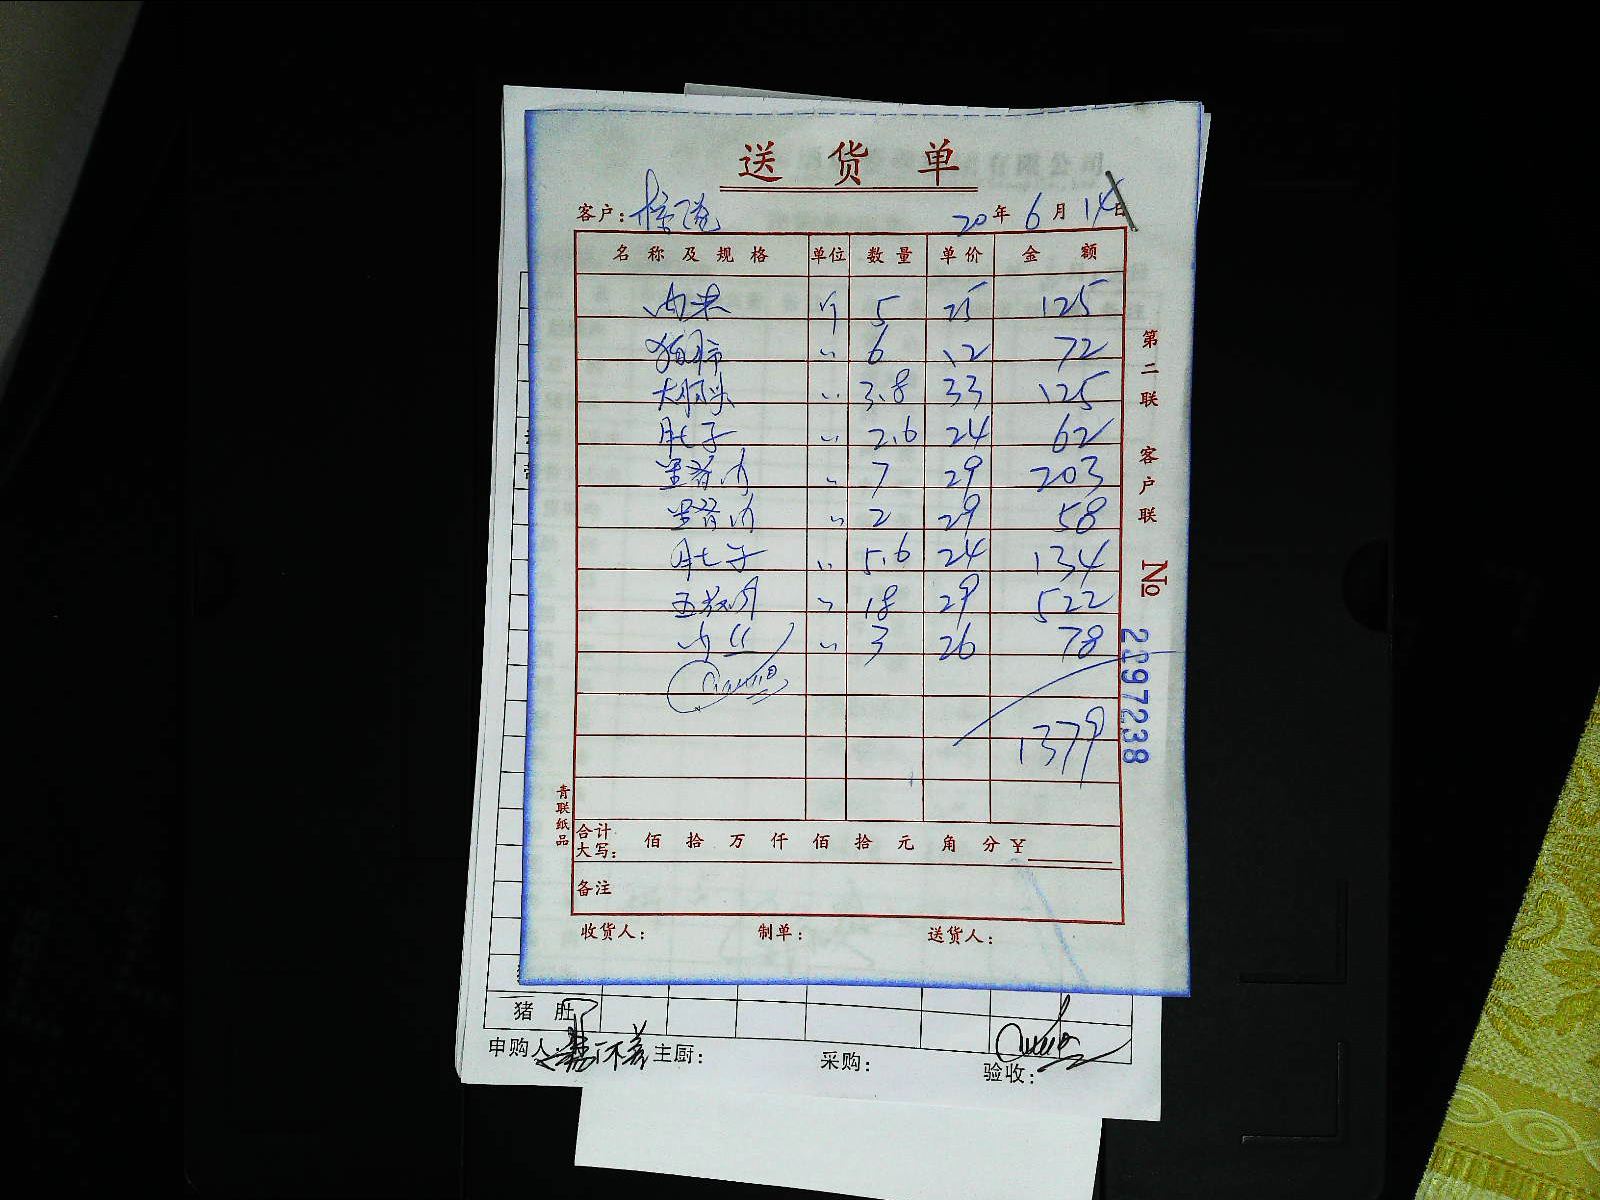 送货单
客户:
20年6月14日
名称及规格 单位 数量 单价 金额
肉末 斤 5 25 125
猪肺 〃 6 12 72
大肠头 〃 3.8 33 125
肚子 〃 2.6 24 62
里脊肉 〃 7 29 203
里脊肉 〃 2 29 58
肚子 〃 5.6 24 134
五花肉 〃 18 29 522
肉丝 〃 3 26 78
1379
合计大写: 佰 拾 万 仟 佰 拾 元 角 分 ¥
备注
收货人: 制单: 送货人:
第二联 客户联
№ 2297238
青联纸品
猪肚
申购人: 主厨: 采购: 验收: